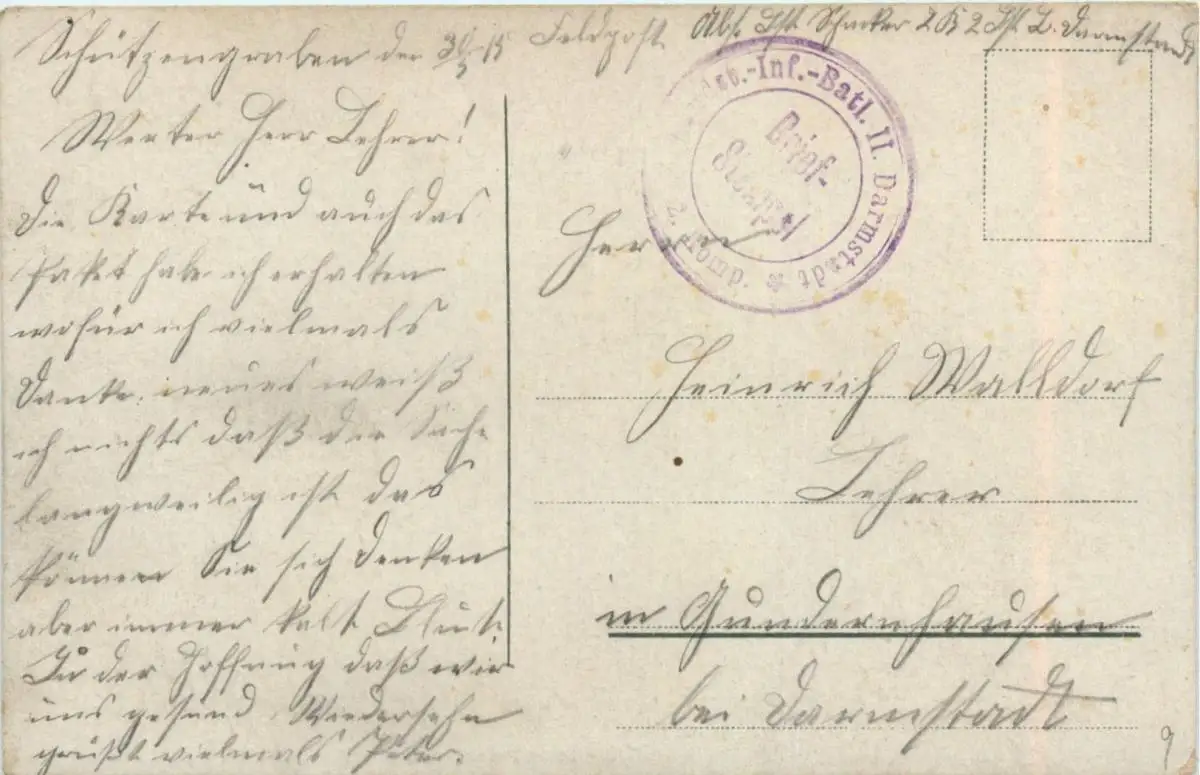 Schützengraben den 3/5 15
Feldpost. Abs. Lst. 2 K 2 Lst. L. Darmstadt
Werter Herr Lehrer!
Die Karte und auch das
Paket habe ich erhalten
wofür ich vielmals
Danke. neues weiß
ich nichts daß die Sache
langweilig ist das
können Sie sich denken
aber immer kalt Blut.
In der Hoffnung daß wir
uns gesund Wiedersehn
grüßt vielmals Peter.
Inf.-Batl. II. Darmstadt * 2. Komp.
Brief-
Stempel
Herrn
Heinrich Walldorf
Lehrer
in Gundernhausen
bei Darmstadt
9